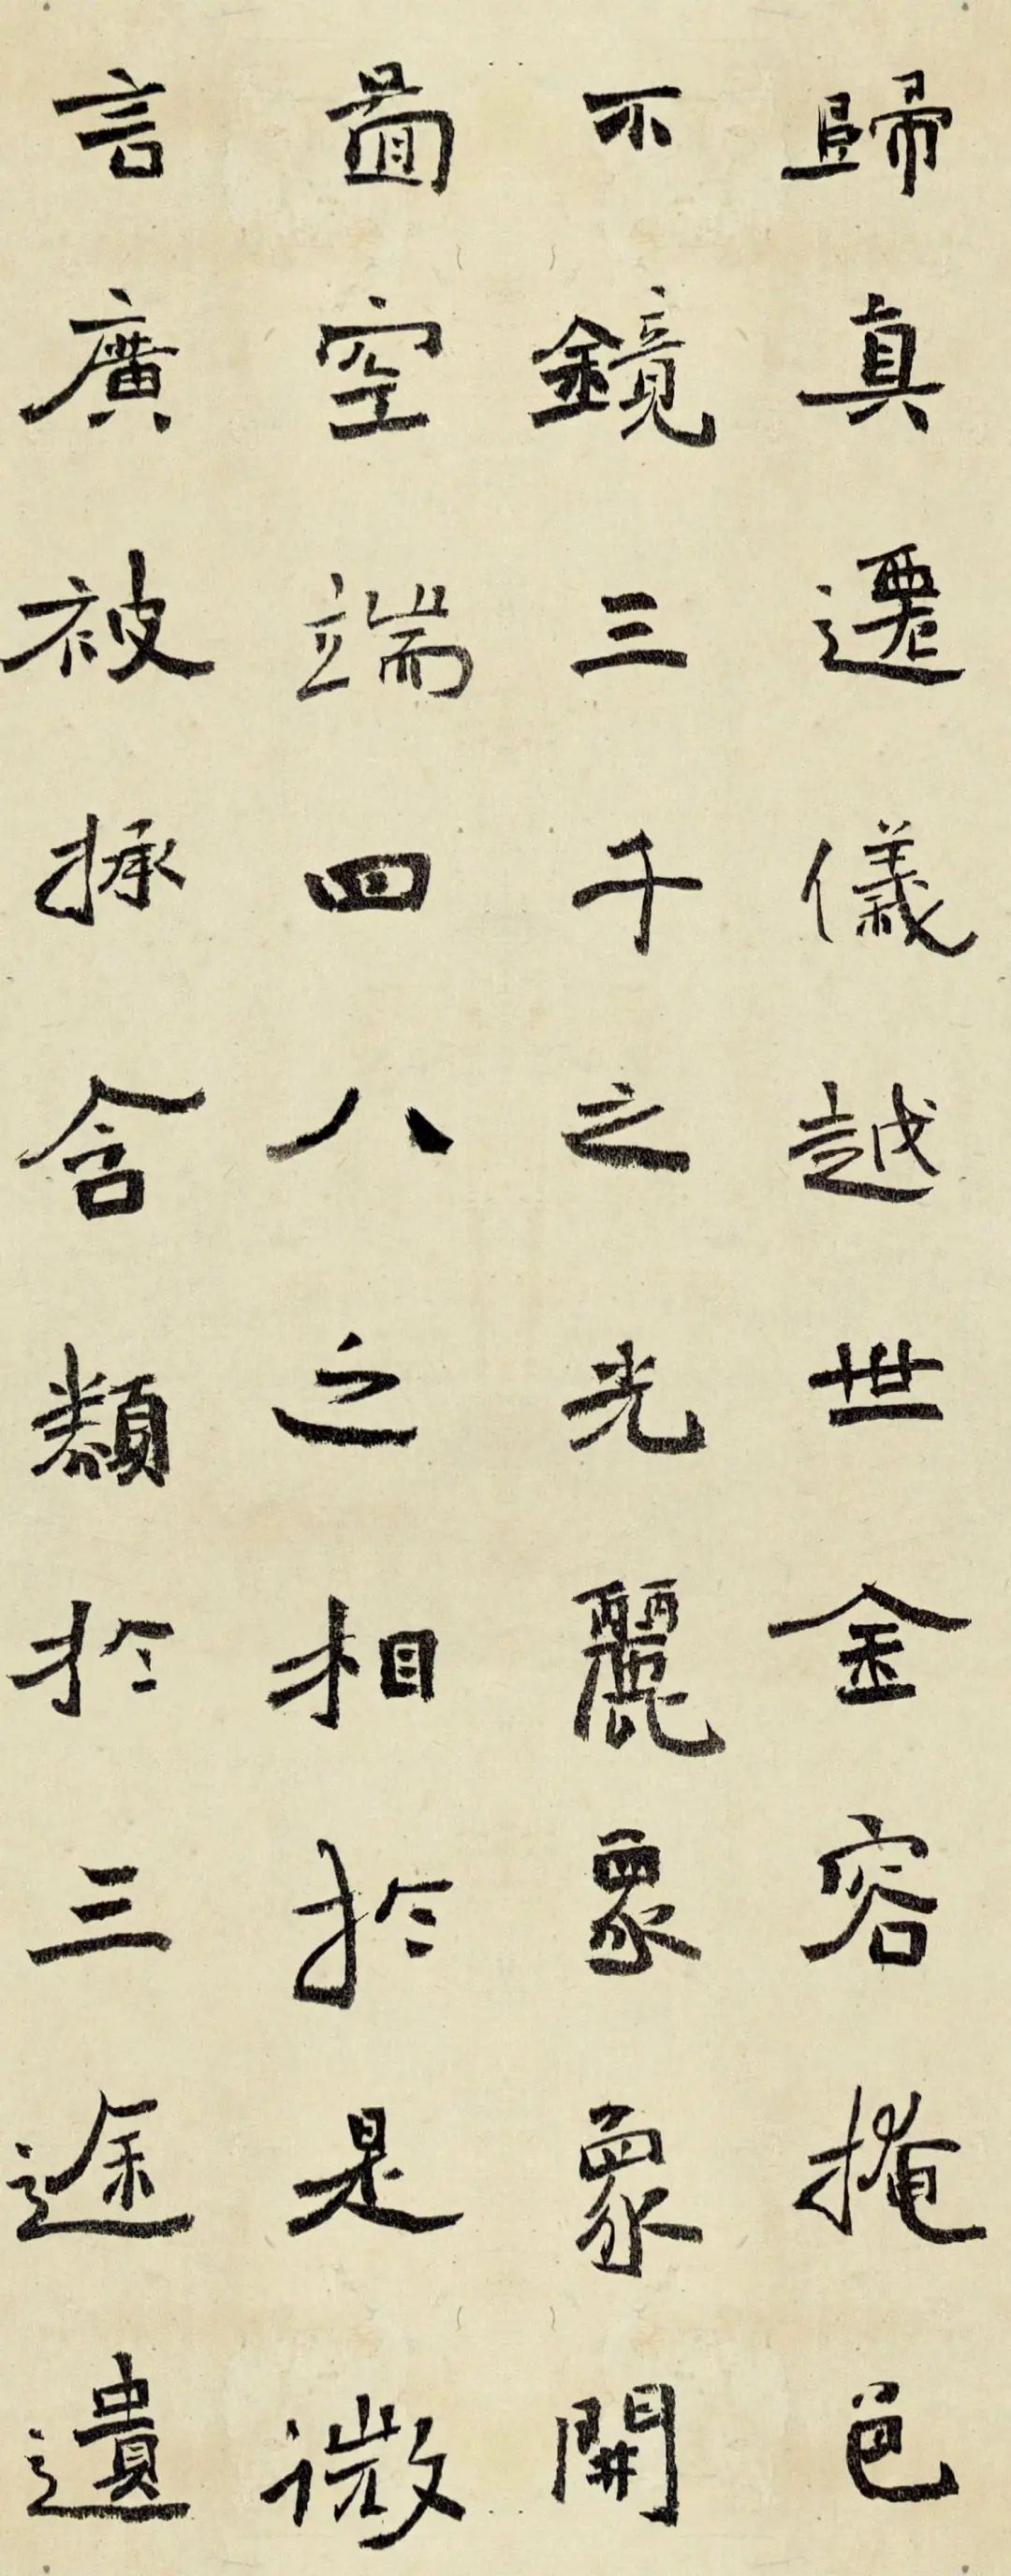 歸真遷儀越世金容掩色
不鏡三千之光麗眾眾開
啚空端四八之相於是微
言廣被拯含類於三途遺